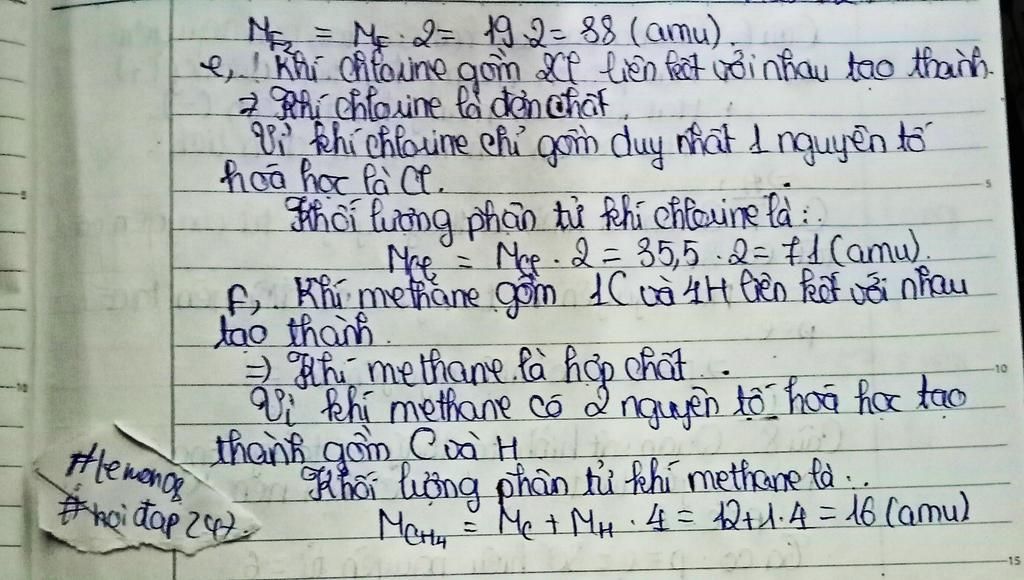 M_F₂ = M_F . 2 = 19.2 = 38 (amu).
e, Khí chlorine gồm 2Cl liên kết với nhau tạo thành.
⇒ Khí chlorine là đơn chất.
Vì khí chlorine chỉ gồm duy nhất 1 nguyên tố
hoá học là Cl.
Khối lượng phân tử khí chlorine là:.
M_Cl₂ = M_Cl . 2 = 35,5 . 2 = 71 (amu).
f, Khí methane gồm 1C và 4H liên kết với nhau
tạo thành.
⇒ Khí methane là hợp chất.
Vì khí methane có 2 nguyên tố hoá học tạo
thành gồm C và H
Khối lượng phân tử khí methane là:.
M_CH₄ = M_C + M_H . 4 = 12+1.4 = 16 (amu)
#lemong8
#hoidap247.
5
10
15